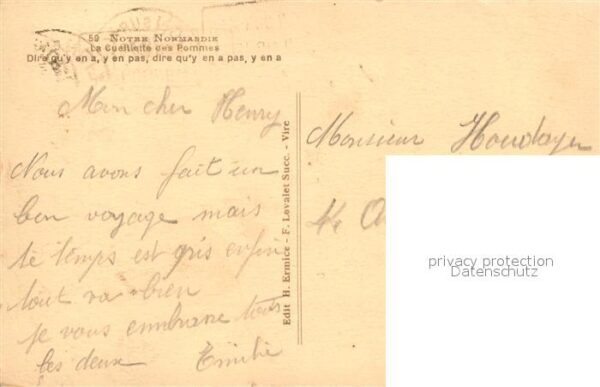 59 NOTRE NORMANDIE
La Cueillette des Pommes
Dire qu'y en a, y en pas, dire qu'y en a pas, y en a
Mon cher Henry
Nous avons fait un
bon voyage mais
le temps est gris enfin
tout va bien
je vous embrasse tous
les deux Emilie
Edit H. Ermice - F. Levalet Succ. - Vire
Monsieur Houdayer
privacy protection
Datenschutz